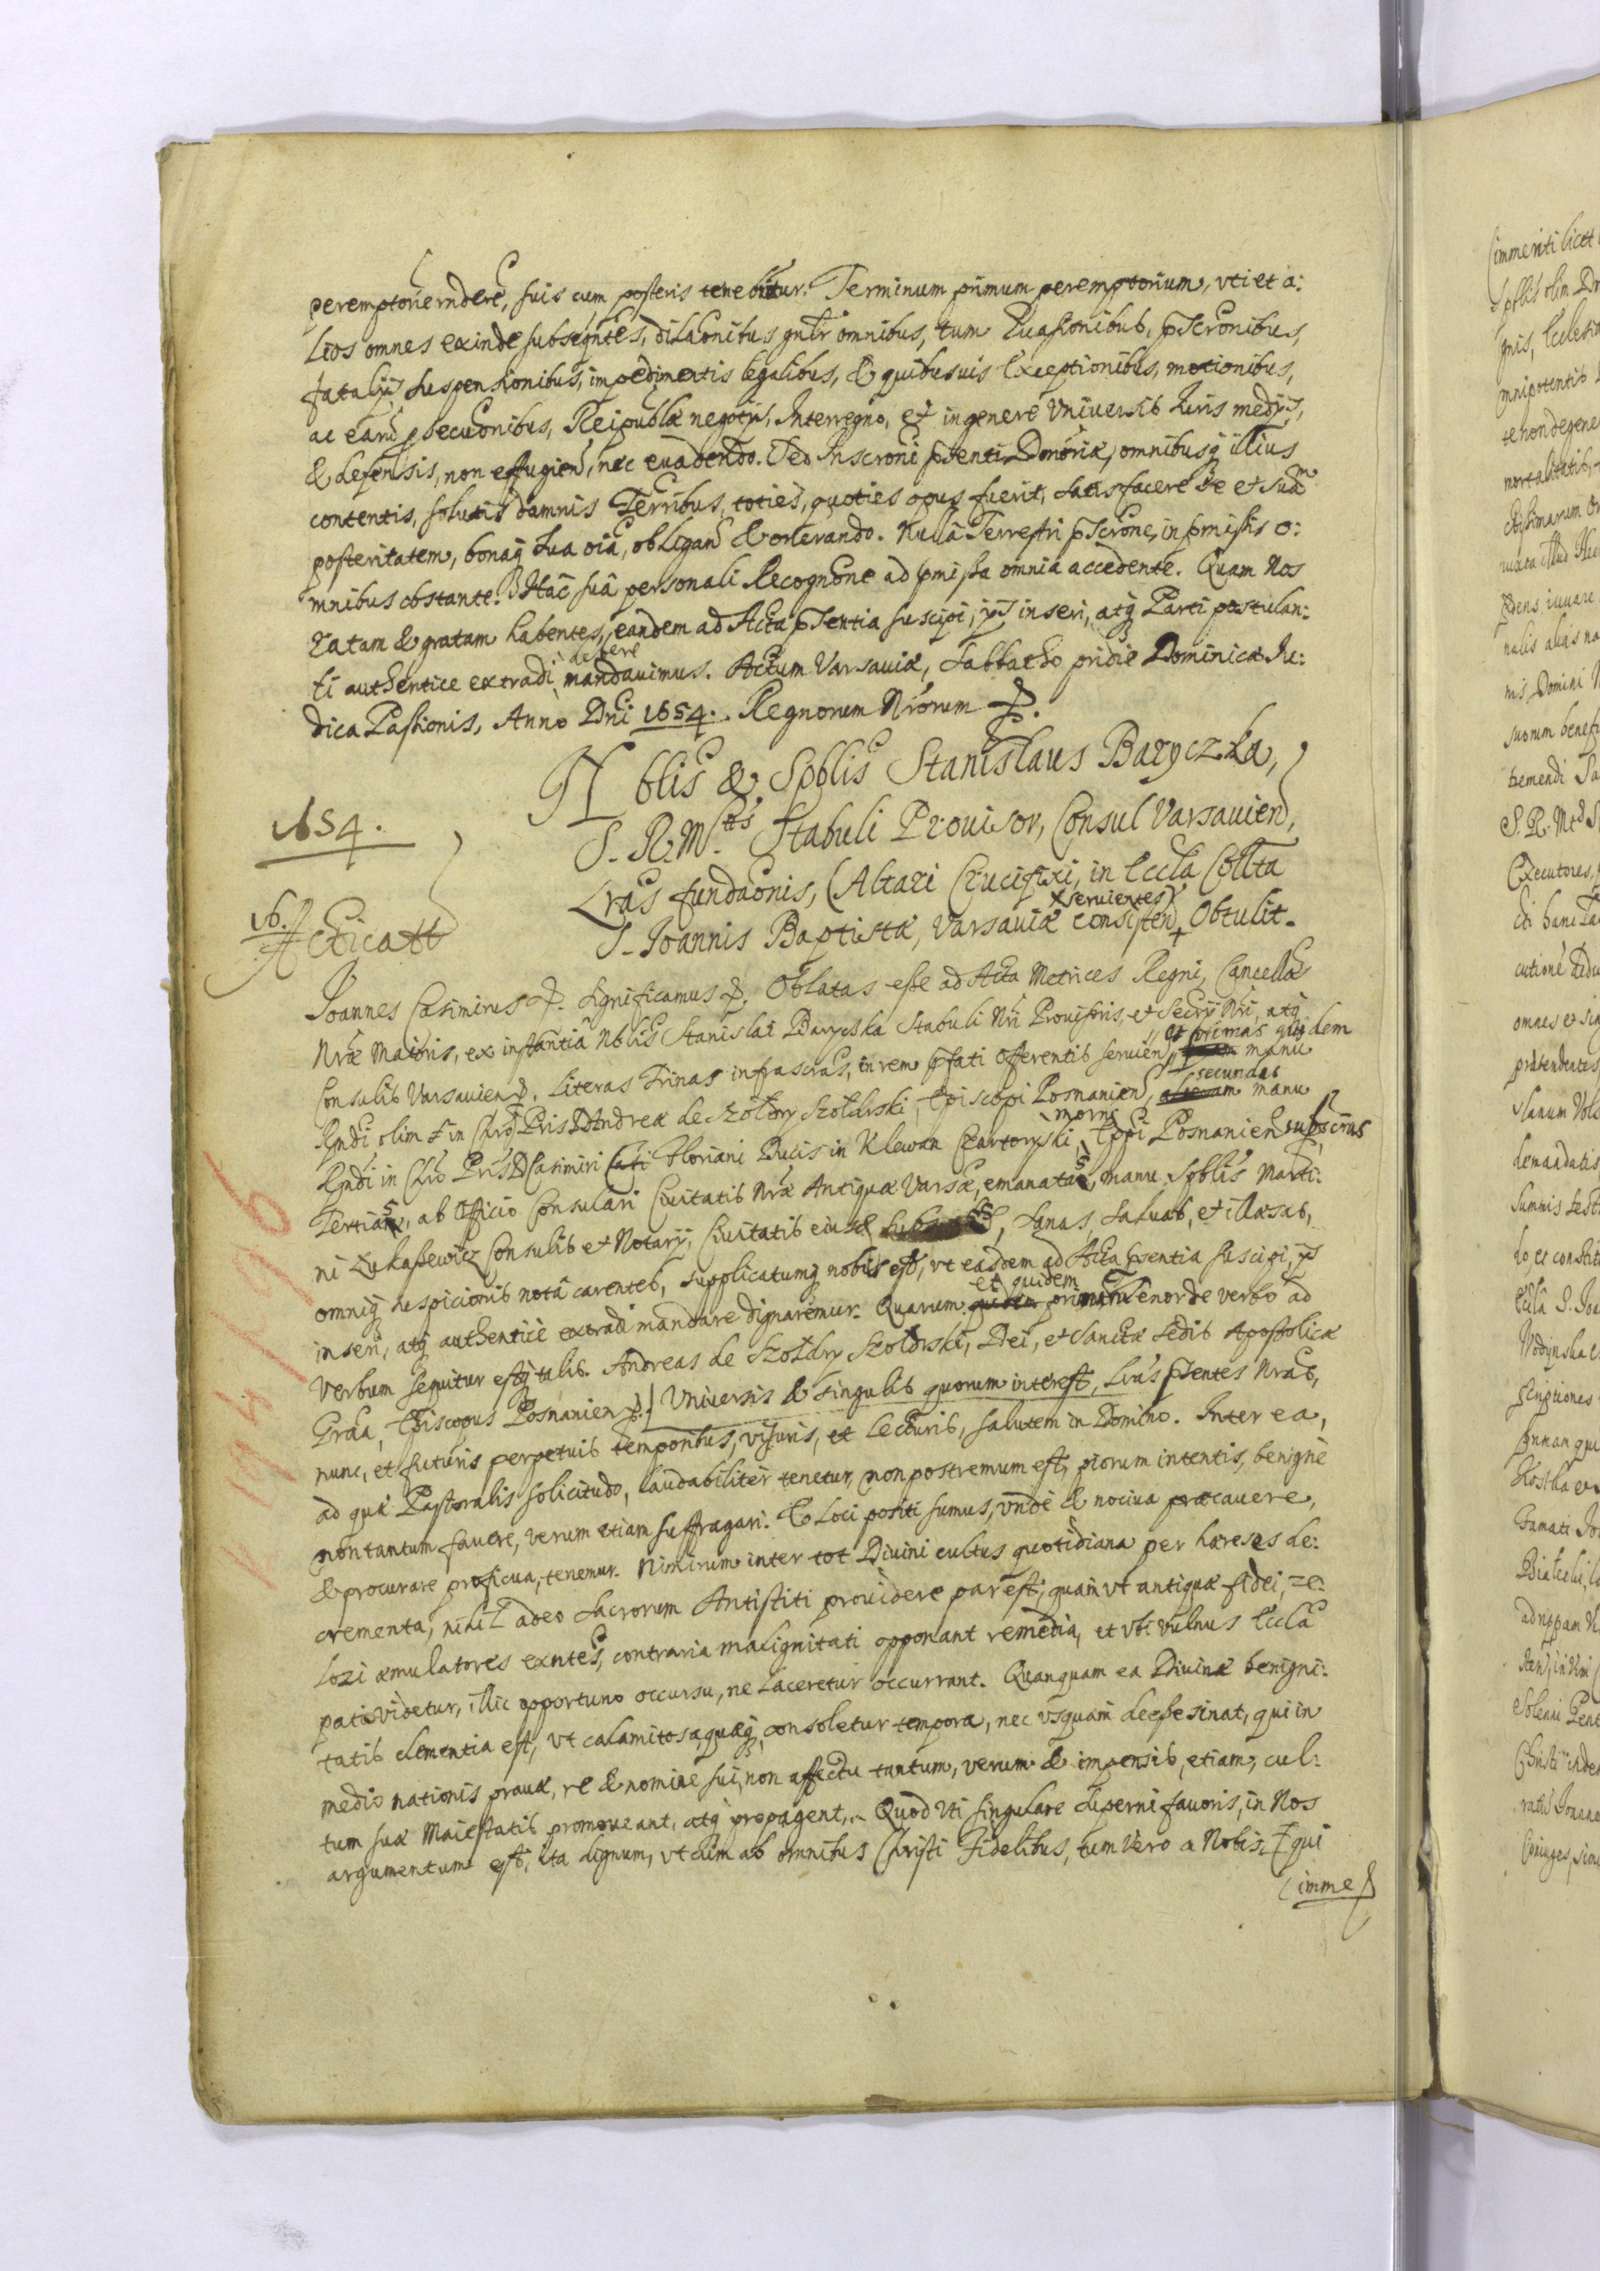 peremptorie rndere, suis cum posteris tenebitur. Terminum primum peremptorium, vti et a:
lios omnes exinde subseqntes, dilaonibus gnlr omnibus, tum Euasionibus, pscronibus,
fatalijs suspensionibus, impedimentis legalibus, & quibusuis Exceptionibus, motionibus,
ac earu psecuonibus, Reipublae negotijs, Interregno, et in genere Vniuersis Iuris medijs,
& defensis, non effugien, nec euadendo. Sed Inscroni psenti Donoriae, omnibusq illius
contentis, solutis damnis Terribus, toties, quoties opus fuerit, satisfacere se et suam
posteritatem, bonaq sua oia, obligan & onerando. Nulla Terrestri pscrone, in pmissis o:
mnibus obstante. Hac sua personali Recognone ad pmissa omnia accedente. Quam Nos
ratam & gratam habentes, eandem ad Acta psentia suscipi, ijs inseri, atq Parti postulan:
ti authentice extradi debere mandauimus. Actum Varsauiae, Sabbatho pridie Dominicae Iu:
dica Passionis, Anno Dni 1654. Regnorum Nrorum
Nblis & Spblis Stanislaus Baryczka,
S. R. Mtis Stabuli Prouisor, Consul Varsauien,
Lras fundaonis, Altari Crucifixi, in Eccla Collta
S. Joannis Baptistae, Varsauiae consisten seruientes Obtulit.
1654.
16.
Acticatt
Joannes Casimirus. Significamus. Oblatas esse ad Acta Metrices Regni, Cancellae
Nrae Maioris, ex instantia Nblis Stanislai Baryczka Stabuli Nri Prouisoris, et Secrij Nri, atq
Consulis Varsauien. Literas Trinas infrascras, in rem pfati Offerentis seruien, et primas quidem manu
Rndi olim in Chro Pris D Andreae de Szoldry Szoldrski, Episcopi Posnanien, secundas manu
Rndi in Chro Pris D Casimiri Floriani Ducis in Klewan Czartoryski, morni Eppi Posnanien subscras
Tertias, ab Officio Consulari Ciuitatis Nrae Antiquae Varsae, emanatas, manu Spblis Marti:
ni Lukaszewicz Consulis et Notarij, Ciuitatis eiusd, Sanas, saluas, et illaesas,
omniq suspicionis nota carentes, supplicatumq nobis est, vt easdem ad Acta psentia suscipi, ijs
inseri, atq authentice extradi mandare dignaremur. Quarum et quidem primaru tenor de verbo ad
verbum sequitur estq talis. Andreas de Szoldry Szoldrski, Dei, et Sanctae Sedis Apostolicae
Graa, Episcopus Posnanien. Vniuersis & singulis quorum interest, Lras psentes Nras,
nunc, et futuris perpetuis temporibus, visuris, et lecturis, salutem in Domino. Inter ea,
ad quae Pastoralis solicitudo, laudabiliter tenetur, non postremum est, piorum intentis, benigne
non tantum fauere, verum etiam suffragari. Eo Loci positi sumus, vnde & nociua praecauere,
& procurare proficua, tenemur. Nimirum inter tot Diuini cultus quotidiana per haereses de:
crementa, nihil adeo Sacrorum Antistiti prouidere par est, quam vt antiquae fidei, ze:
lozi aemulatores exntes, contraria malignitati opponant remedia, et vbi vulnus Eccla
pati videtur, illic opportuno occursu, ne laceretur occurrant. Quanquam ea Diuinae benigni:
tatis clementia est, vt calamitosa quaeq consoletur tempora, nec vsquam deesse sinat, qui in
medio nationis prauae, re & nomine sui, non affectu tantum, verum & impensis, etiam, cul:
tum suae Maiestatis promoueant, atq propagent. Quod vti singulare superni fauoris, in Nos
argumentum est, ita dignum, vt cum ab omnibus Christi Fidelibus, tum vero a Nobis, qui
imme